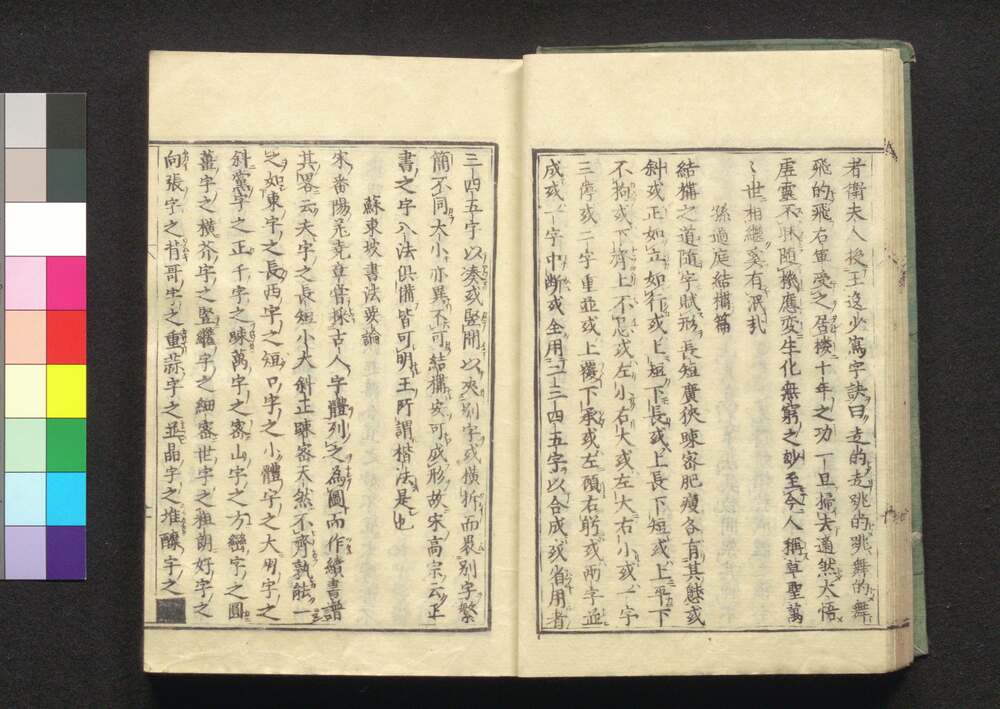 者衛夫人授王逸少寫字訣曰走的走跳的跳舞的舞
飛的飛右軍受之居樓十年之功一旦掃去適然大悟
虛靈不昧随機應変生化無窮之妙至今人稱草聖萬
世相繼奚有潤乱
孫過庭結構篇
結構之道随字賦形長短廣狹疎密肥瘦各有其態或
斜或正如立如行或上短下長或上長下短或上平下
不拘或下濟上不忌或左小右大或左大右小或一字
三停或二字重並或上覆下承或左顧右盻或两字並
成或一字中断或全用二三四五字以合成或省用者
三四五字以湊或竪開以夾別字或横拆而畏別字繁
簡不同大小亦異不可結構安可成形故宋高宗云正
書之字八法俱備皆可明王所謂楷法是也
蘇東坡書法發論
宋番陽克章嘗採古人字體列之為圖而作續書譜
其畧云夫字之長短小大斜正疎密天然不齊孰能一
之如東字之長西字之短口字之小體字之大朋字之
斜黨字之正千字之疎萬字之密山字之方巒字之圓
薑字之横芥字之竪繼字之細密世字之粗朗好字之
向張字之背哥字之重蒜字之並晶字之堆釀字之